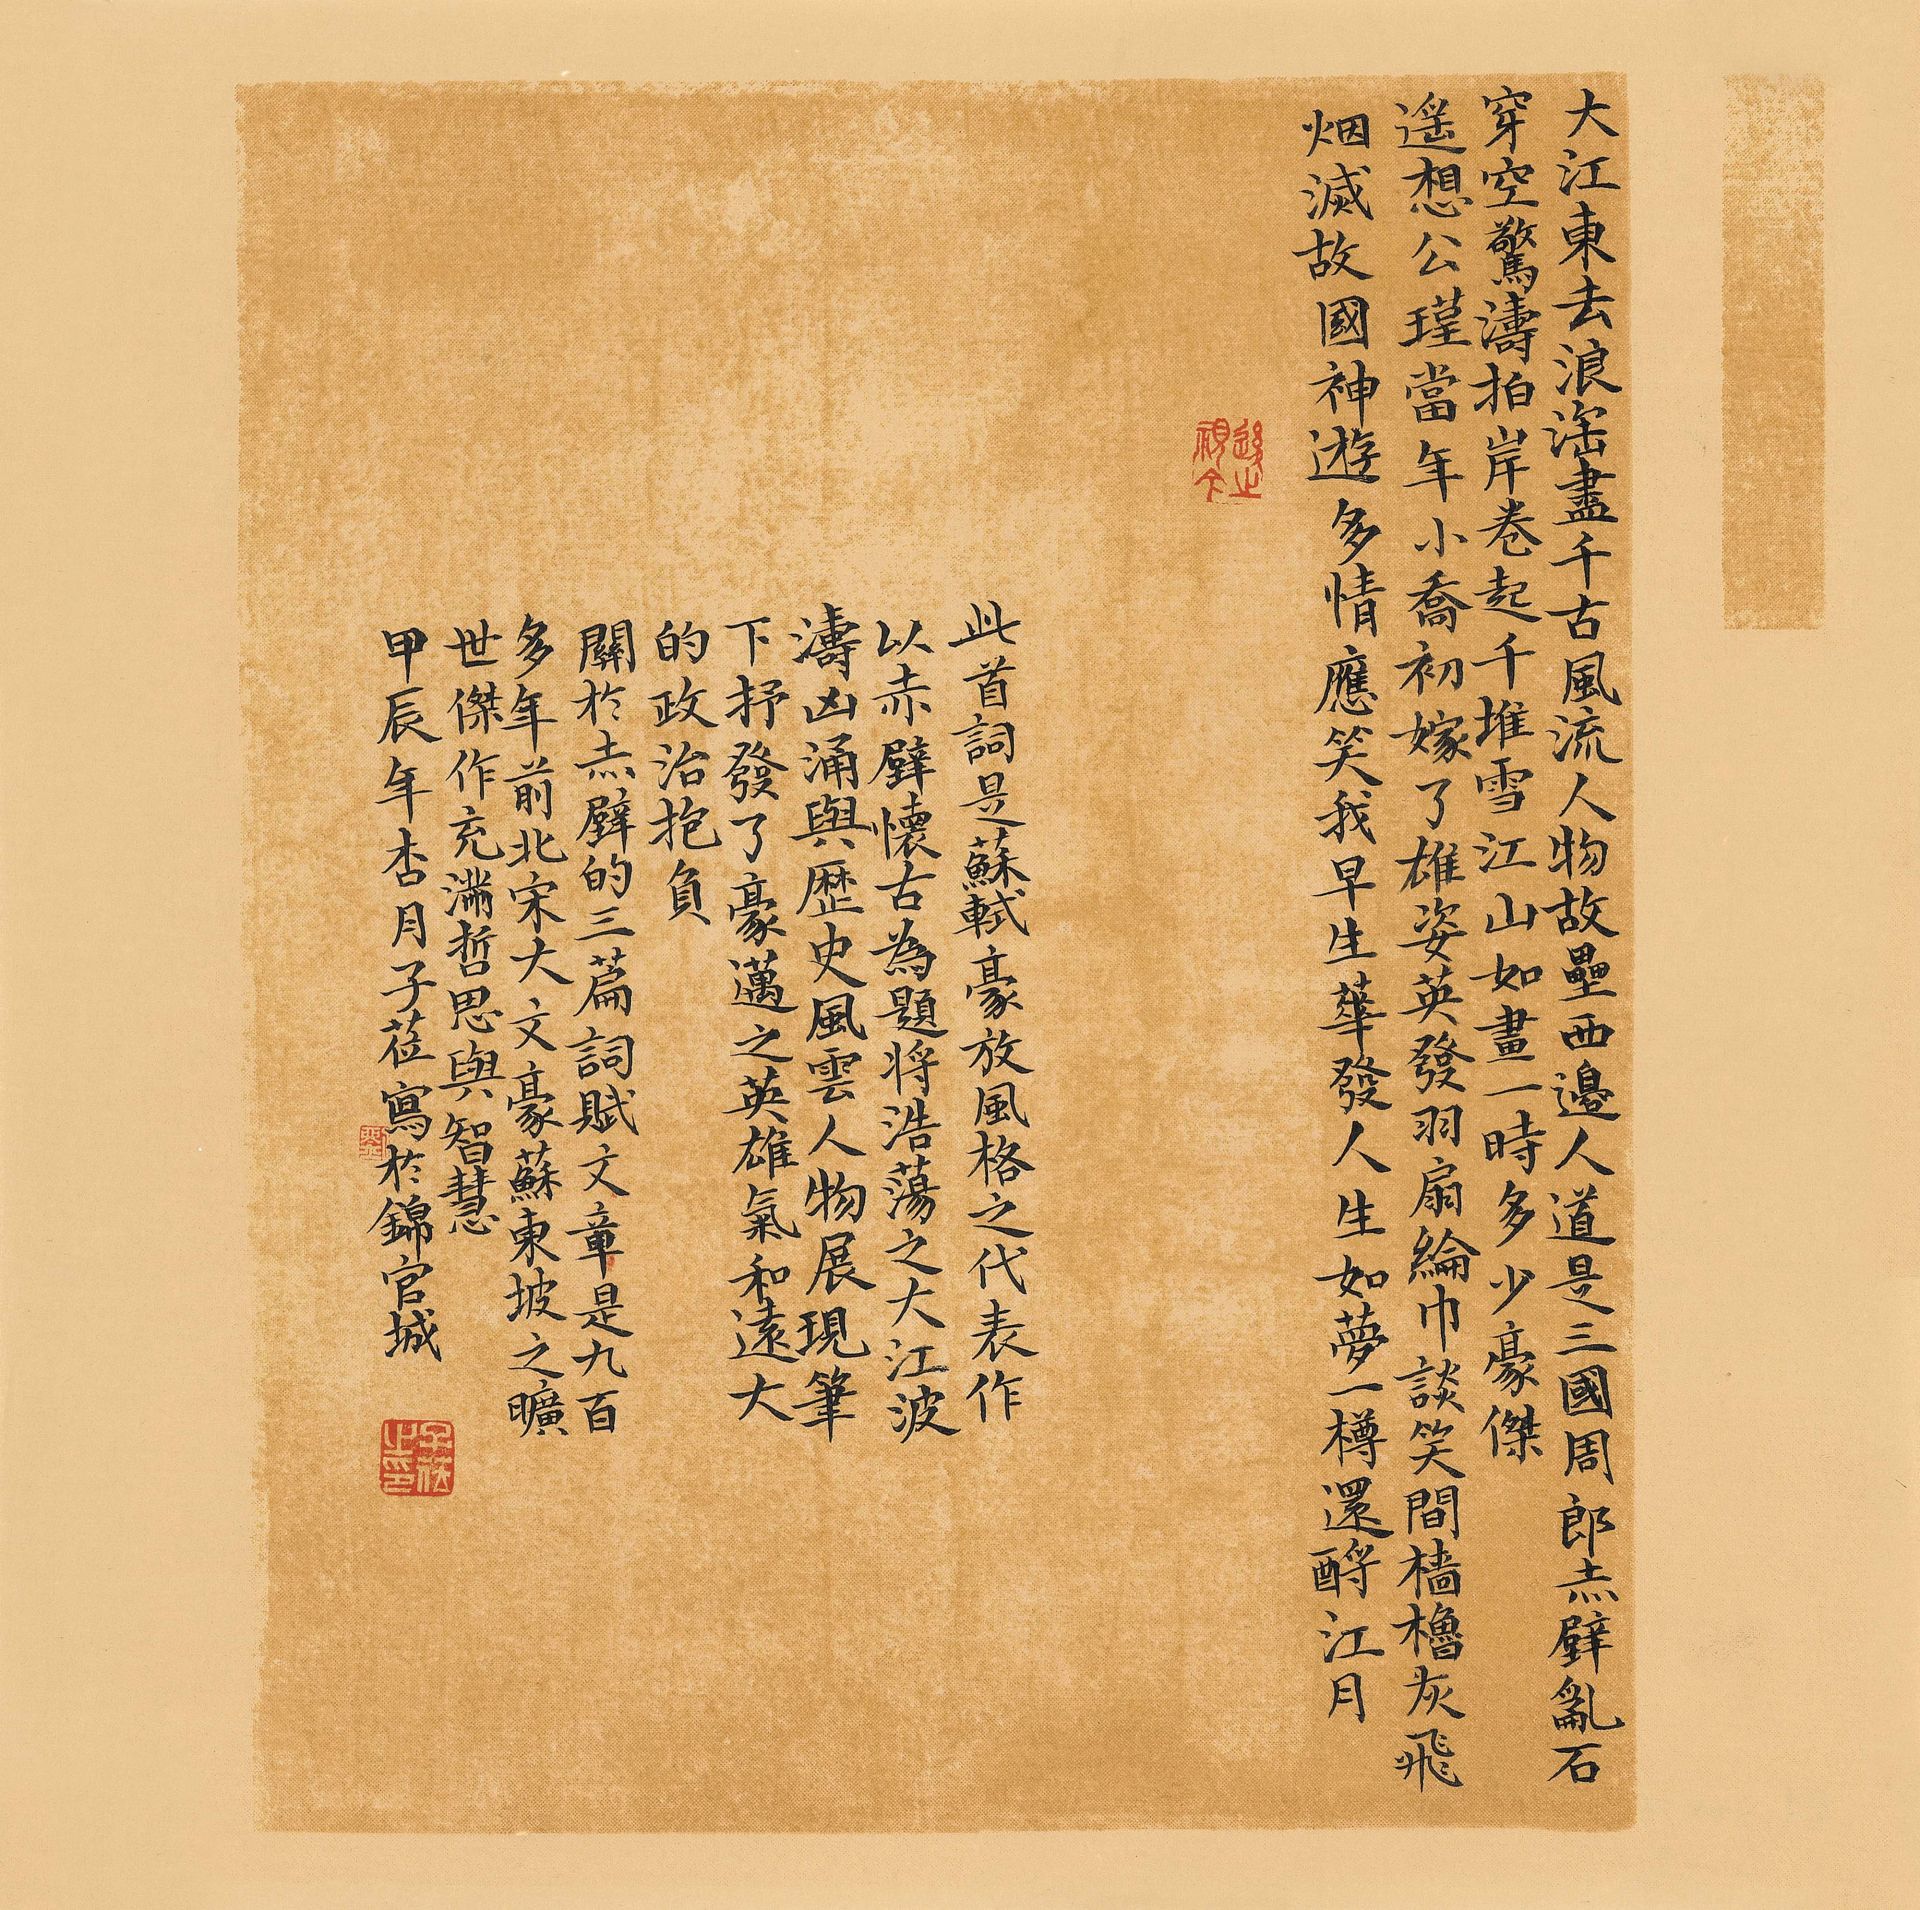 大江東去浪滔盡千古風流人物故壘西邊人道是三國周郎赤壁亂石
穿空驚濤拍岸卷起千堆雪江山如畫一時多少豪傑
遥想公瑾當年小喬初嫁了雄姿英發羽扇綸巾談笑間檣櫓灰飛
烟滅故國神遊多情應笑我早生華發人生如夢一樽還酹江月
此首詞是蘇軾豪放風格之代表作
以赤壁懷古為題将浩蕩之大江波
濤凶涌與歷史風雲人物展現筆
下抒發了豪邁之英雄氣和遠大
的政治抱負
關於赤壁的三篇詞賦文章是九百
多年前北宋大文豪蘇東坡之曠
世傑作充滿哲思與智慧
甲辰年杏月子莅寫於錦官城